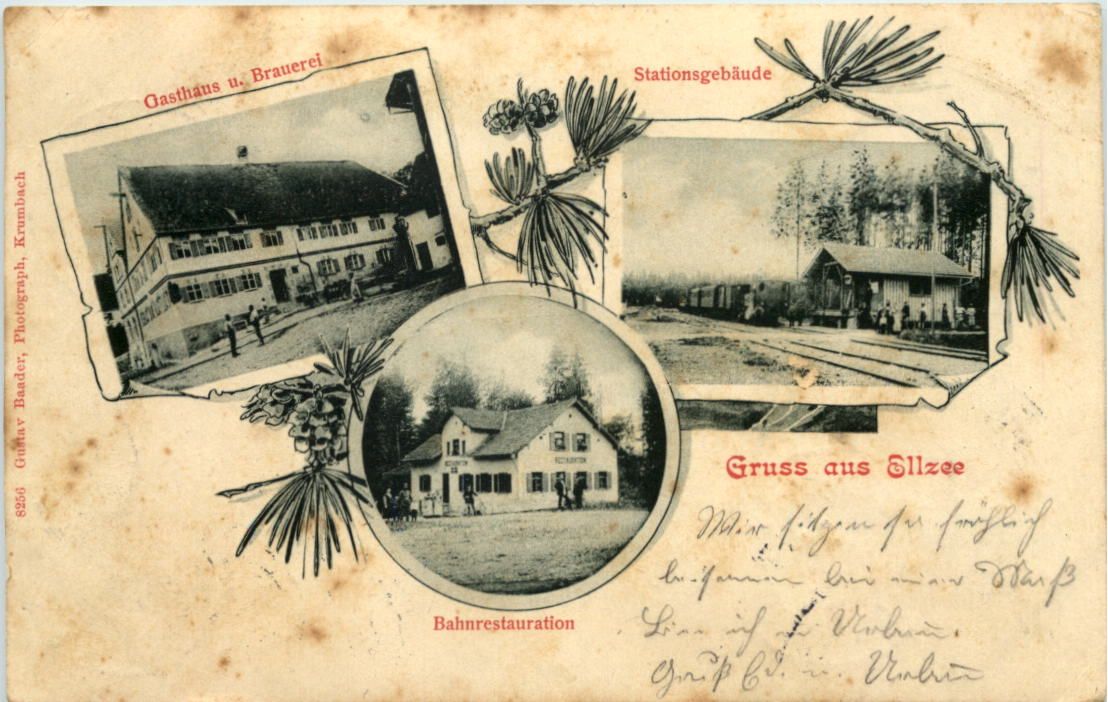 Gasthaus u. Brauerei
Stationsgebäude
8256 Gustav Baader, Photograph, Krumbach
RESTAURATION
RESTAURATION
Bahnrestauration
Gruss aus Ellzee
Wir sitzen so fröhlich
beisammen bei einer Maß
ich
Gruß